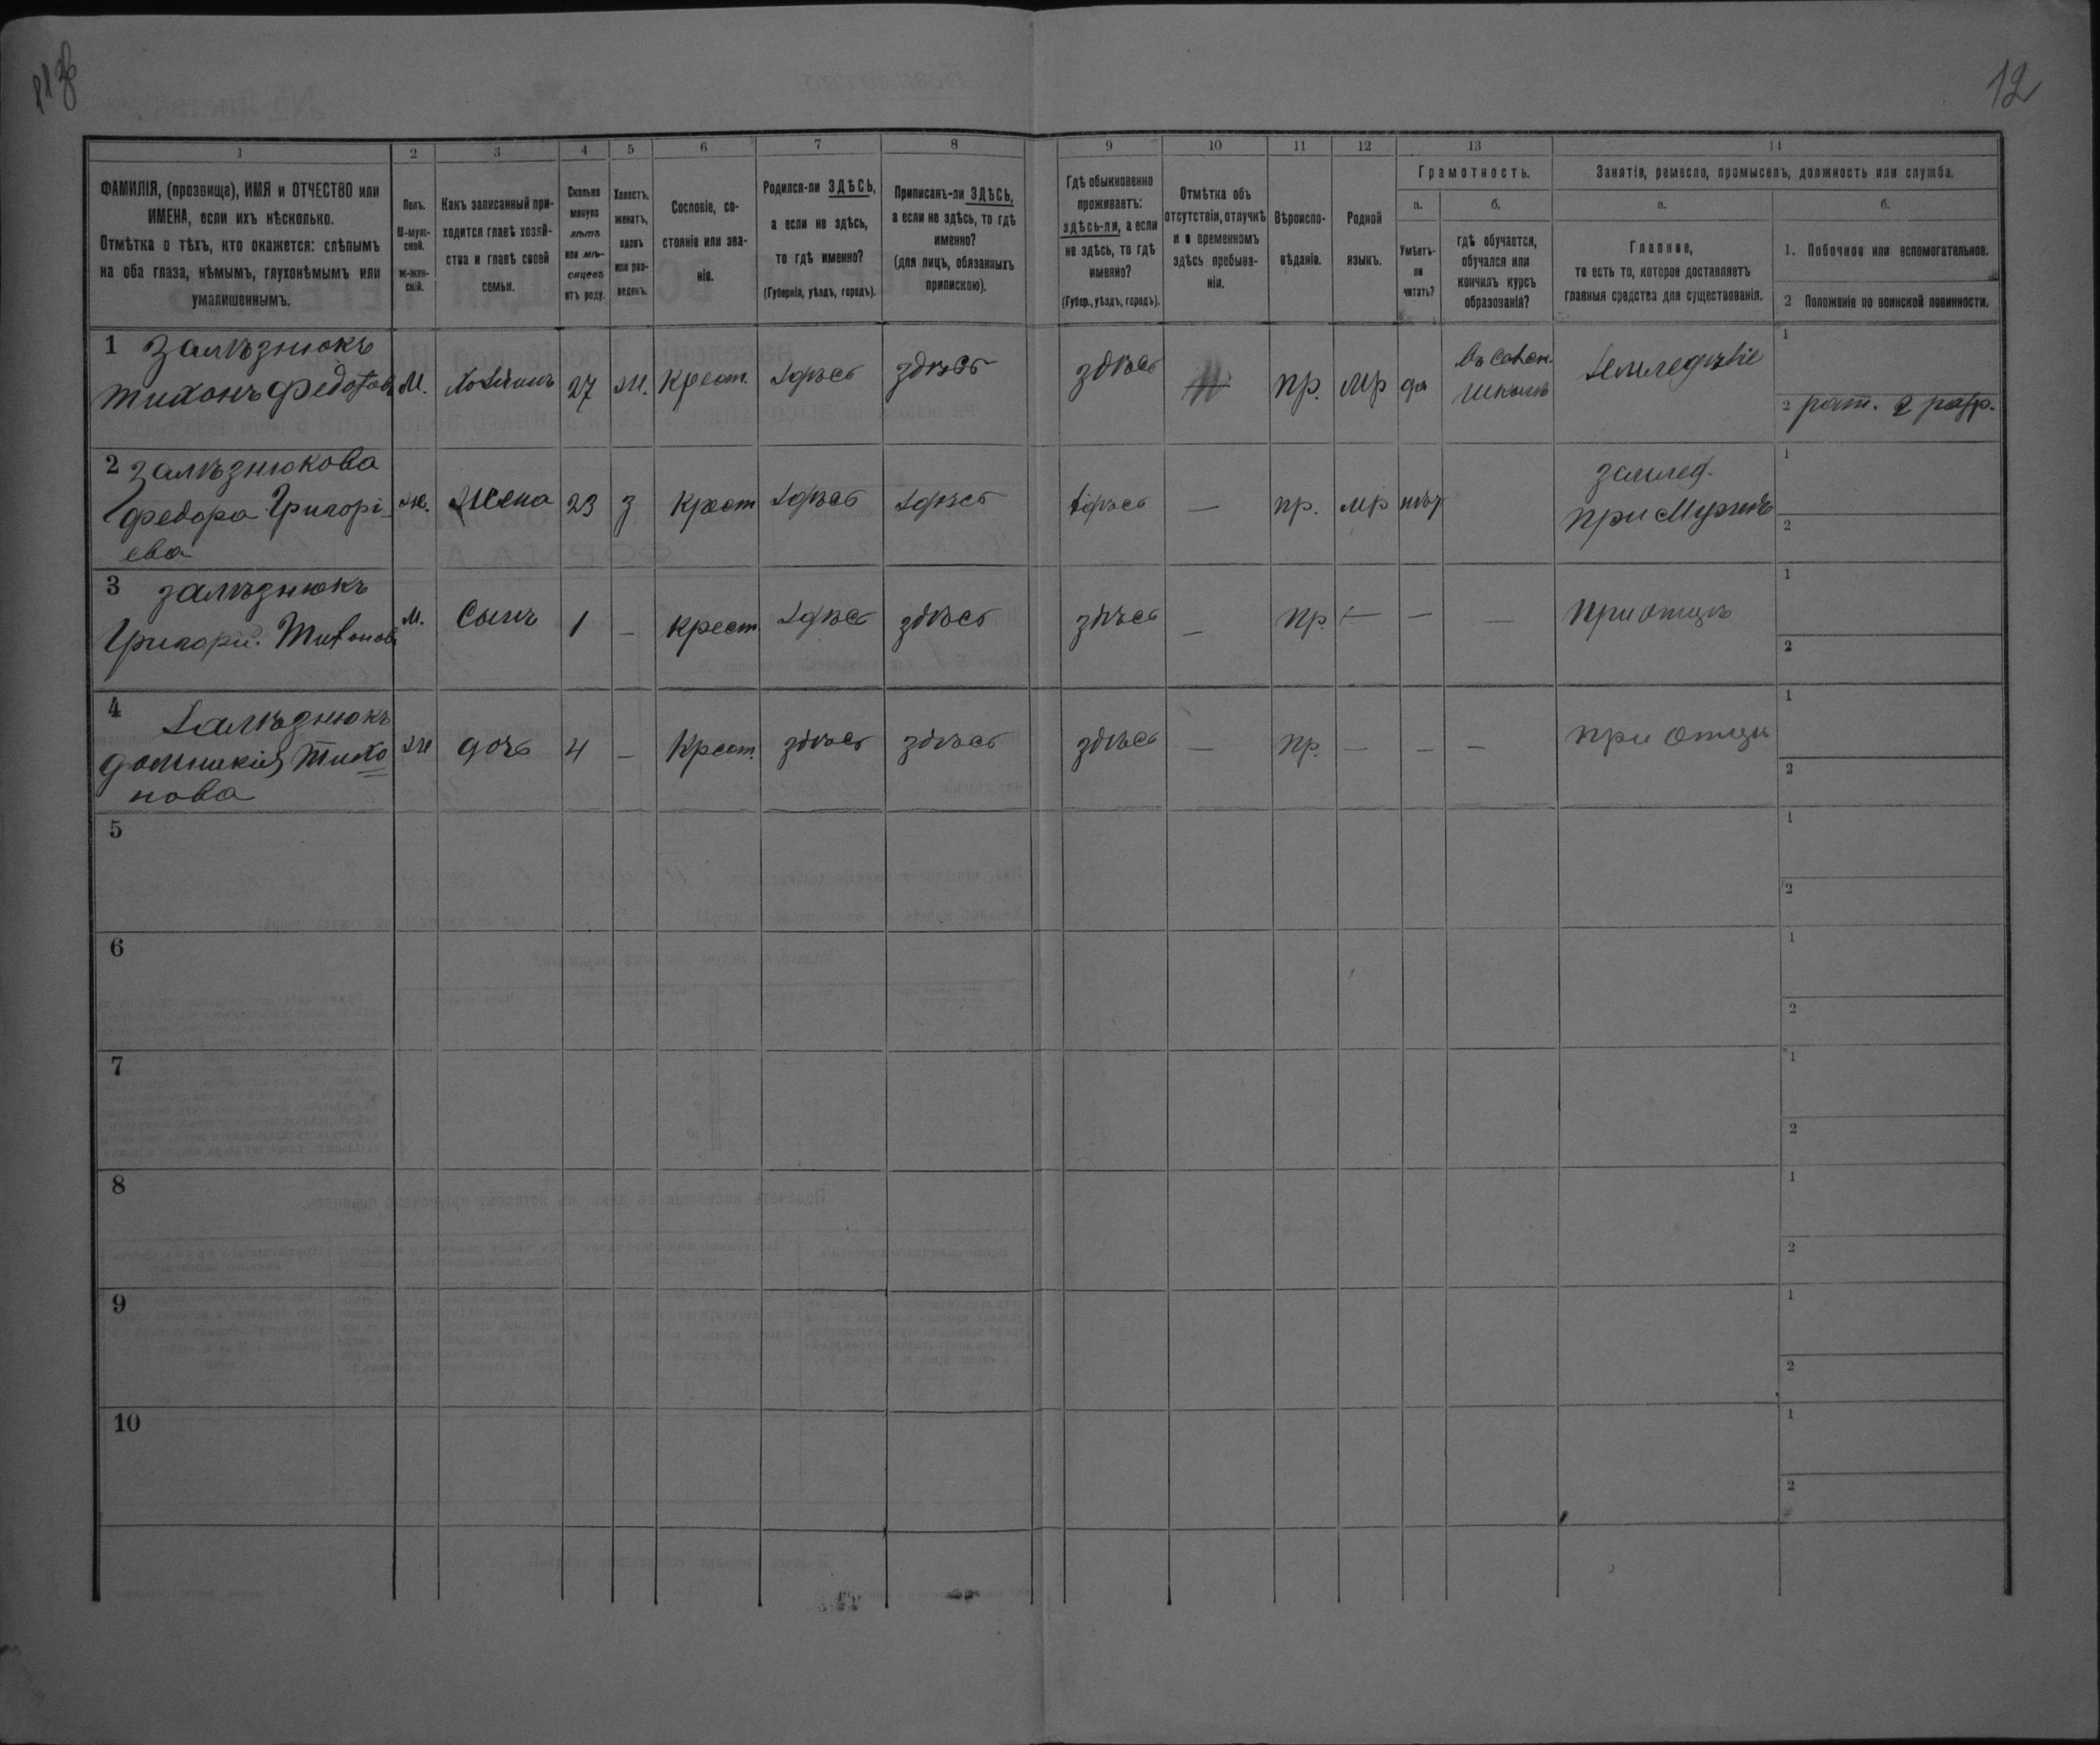 12
1 2 3 4 5 6 7 8 9 10 11 12 13 14
ФАМИЛІЯ, (прозвище), ИМЯ и ОТЧЕСТВО или
ИМЕНА, если ихъ нѣсколько.
Отмѣтка о тѣхъ, кто окажется: слѣпымъ
на оба глаза, нѣмымъ, глухонѣмымъ или
умалишеннымъ.
Полъ.
М-муж-
ской.
Ж-жен-
скій.
Какъ записанный при-
ходится главѣ хозяй-
ства и главѣ своей
семьи.
Сколько
минуло
лѣтъ
или мѣ-
сяцевъ
отъ роду.
Холостъ,
женатъ,
вдовъ
или раз-
веденъ.
Сословіе, со-
стояніе или зва-
ніе.
Родился-ли ЗДѢСЬ,
а если не здѣсь,
то гдѣ именно?
(Губернія, уѣздъ, городъ).
Приписанъ-ли ЗДѢСЬ,
а если не здѣсь, то гдѣ
именно?
(для лицъ, обязанныхъ
припискою).
Гдѣ обыкновенно
проживаетъ:
здѣсь-ли, а если
не здѣсь, то гдѣ
именно?
(Губер., уѣздъ, городъ).
Отмѣтка объ
отсутствіи, отлучкѣ
и о временномъ
здѣсь пребыва-
ніи.
Вѣроиспо-
вѣданіе.
Родной
языкъ.
Грамотность.
а.
Умѣетъ-
ли
читать?
б.
гдѣ обучается,
обучался или
кончилъ курсъ
образованія?
Занятія, ремесло, промыселъ, должность или служба.
а.
Главное,
то есть то, которое доставляетъ
главныя средства для существованія.
б.
1. Побочное или вспомогательное.
2 Положеніе по воинской повинности.
1 Залѣзнюкъ
Тихонъ Федотовъ М. Хозяинъ 27 Ж. Крест. Здѣсь здѣсь здѣсь пр. мр да Въ
школѣ Земледѣліе
1
2 рат. 2 разр.
2 Залѣзнюкова
Федора Григорі-
ева Ж. Жена 23 З Крест Здѣсь Здѣсь Здѣсь — пр. мр нѣт
землед.
при Мужѣ
1
2
3 Залѣзнюкъ
Григорій Тихонов М. Сынъ 1 — крест Здѣсь здѣсь здѣсь — пр. — — — при отцѣ
1
2
4 Залѣзнюкъ
Домникія Тихо
нова Ж дочь 4 — Крест. здѣсь здѣсь здѣсь — пр. — — — при отцѣ
1
2
5
1
2
6
1
2
7
1
2
8
1
2
9
1
2
10
1
2